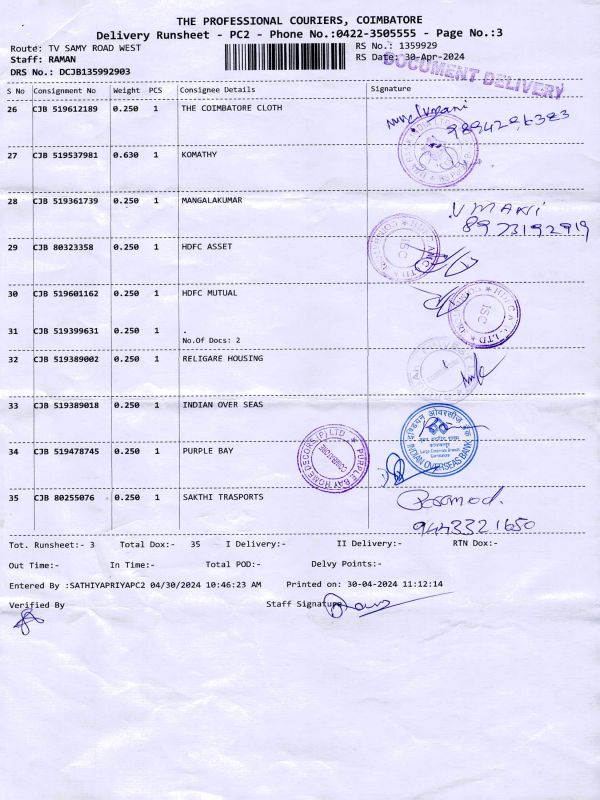 THE PROFESSIONAL COURIERS, COIMBATORE
Delivery Runsheet - PC2 - Phone No.:0422-3505555 - Page No.:3
Route: TV SAMY ROAD WEST
RS No.: 1359929
Staff: RAMAN
RS Date: 30-Apr-2024
DOCUMENT DELIVERY
DRS No.: DCJB135992903
S No Consignment No Weight PCS Consignee Details Signature
26 CJB 519612189 0.250 1 THE COIMBATORE CLOTH
9894296383
27 CJB 519537981 0.630 1 KOMATHY
28 CJB 519361739 0.250 1 MANGALAKUMAR
V MANI
8973192919
29 CJB 80323358 0.250 1 HDFC ASSET
ISC
30 CJB 519601162 0.250 1 HDFC MUTUAL
ISC
31 CJB 519399631 0.250 1 .
No.Of Docs: 2
32 CJB 519389002 0.250 1 RELIGARE HOUSING
33 CJB 519389018 0.250 1 INDIAN OVER SEAS
इण्डियन ओवरसीज़ बैंक
INDIAN OVERSEAS BANK
34 CJB 519478745 0.250 1 PURPLE BAY
PURPLE BAY HOME DECORS (P) LTD
COIMBATORE
35 CJB 80255076 0.250 1 SAKTHI TRASPORTS
9443321650
Tot. Runsheet:- 3 Total Dox:- 35 I Delivery:- II Delivery:- RTN Dox:-
Out Time:- In Time:- Total POD:- Delvy Points:-
Entered By :SATHIYAPRIYAPC2 04/30/2024 10:46:23 AM Printed on: 30-04-2024 11:12:14
Verified By Staff Signature